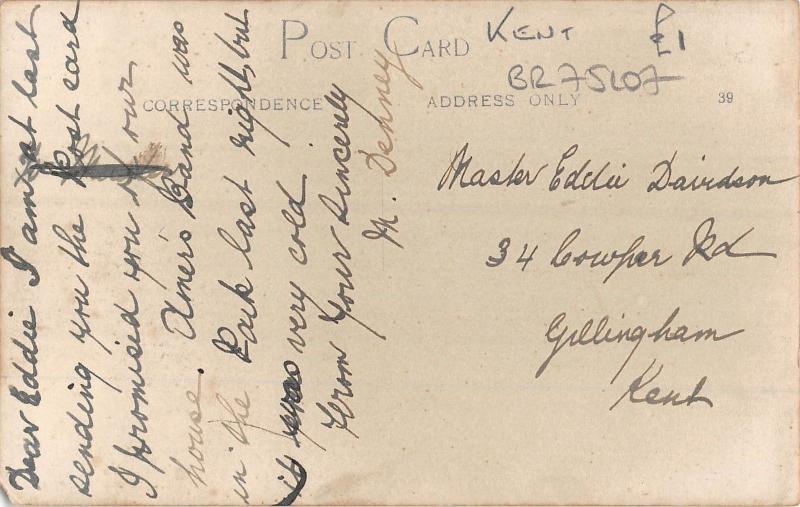 POST CARD
KENT
£1
BR75L07
CORRESPONDENCE
ADDRESS ONLY
39
Dear Eddie I am at last
sending you the Post card
I promised you of our
house. Band was
in the Park last night, but
it was very cold.
From Your Sincerely
M. Denney
Master Eddie Davidson
34 Cowper Rd
Gillingham
Kent